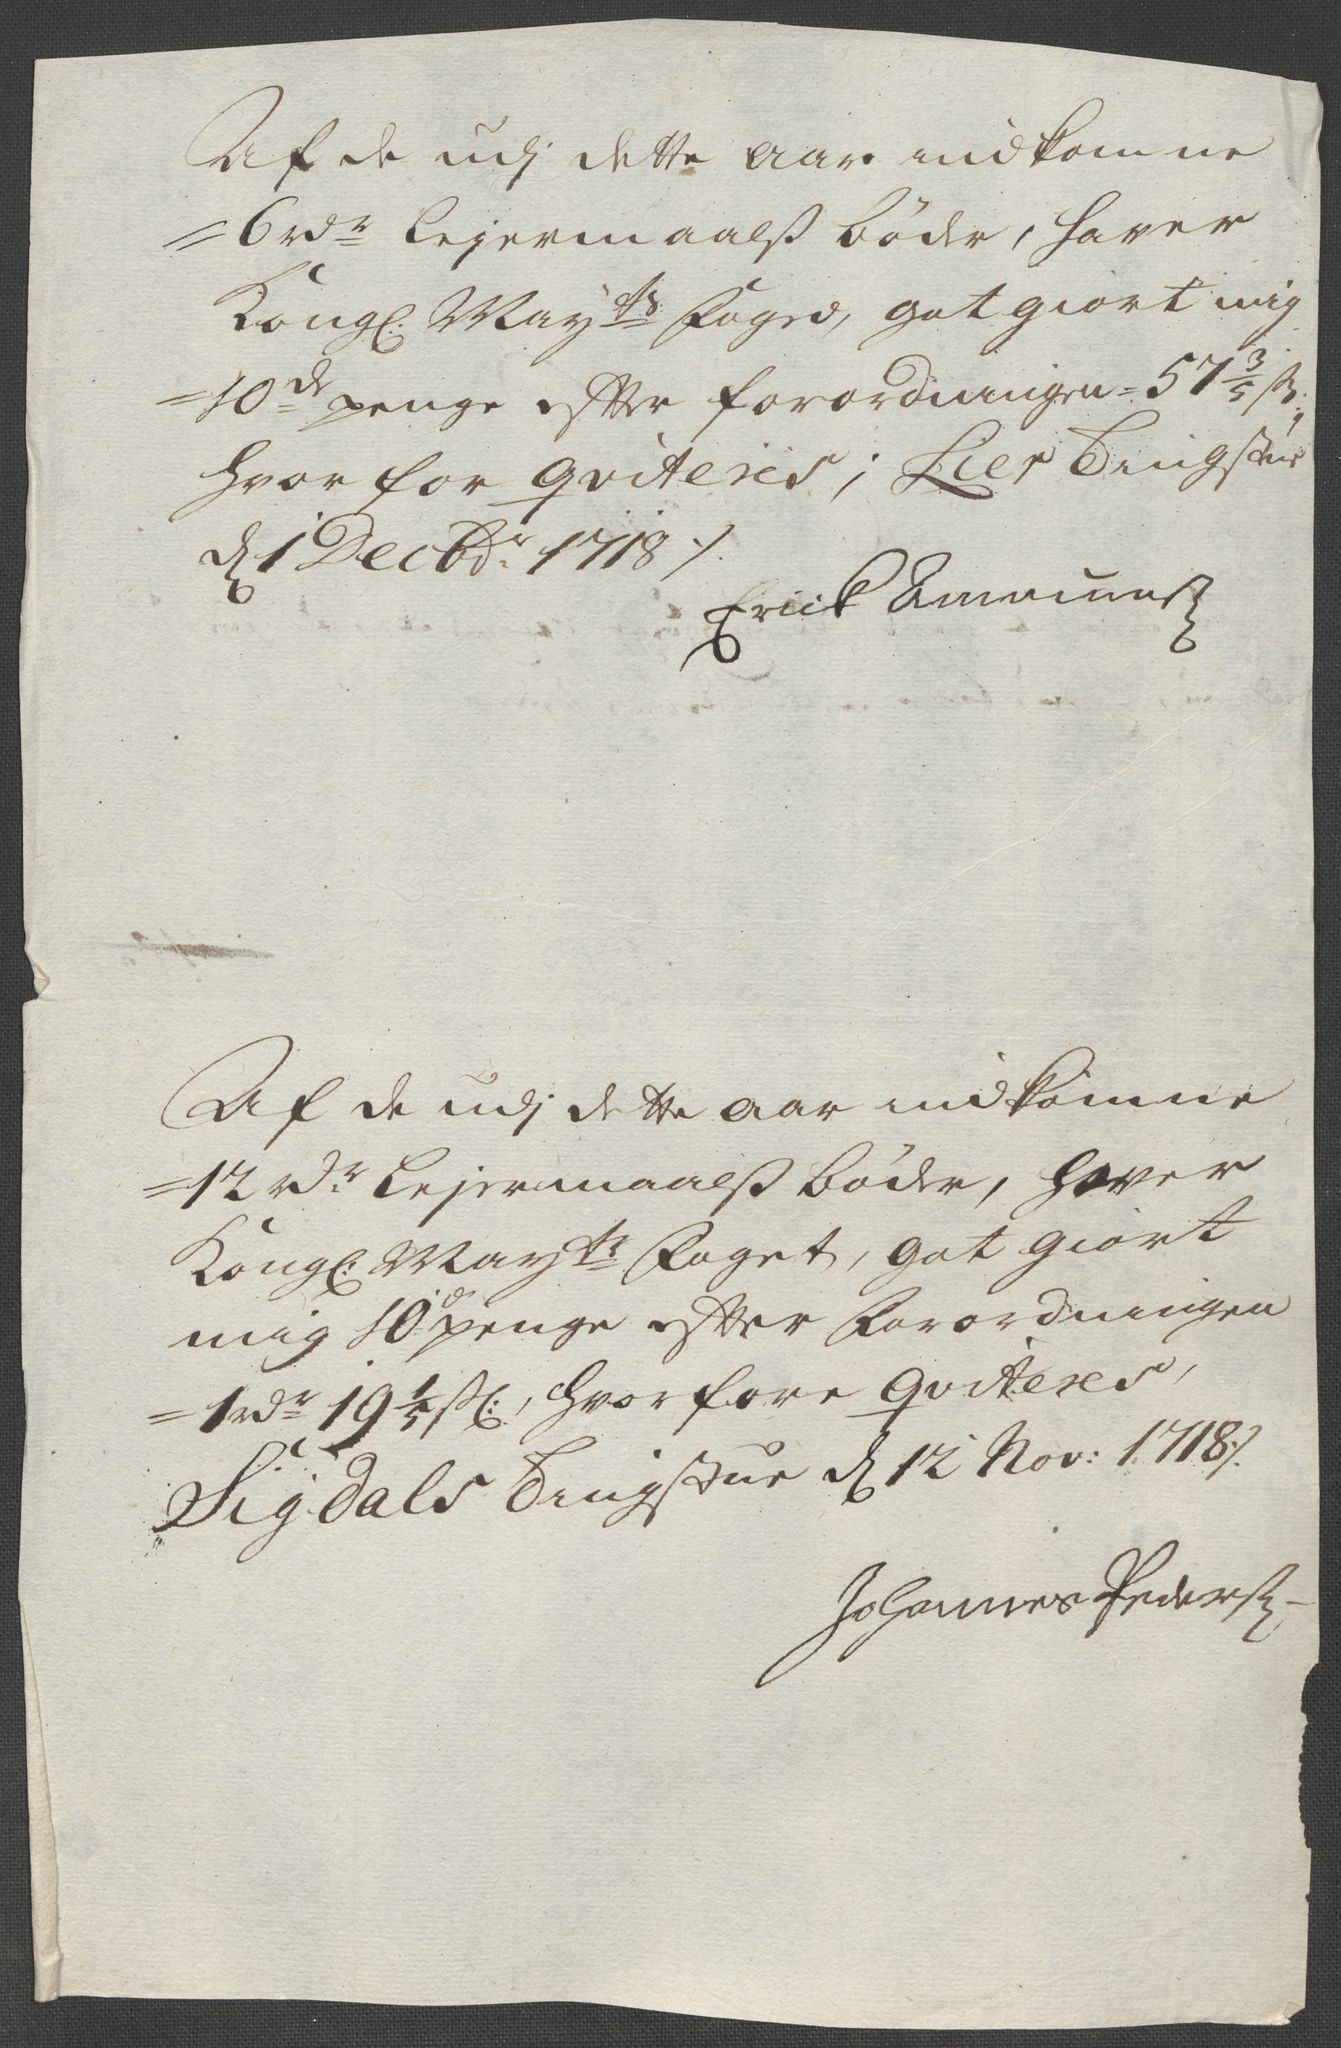 Af de udj dette aar indkomne
=6 rdr Lejermaalß bøder, haver
Kongl: Mayts Foged, got giort mig
=10de penge efter forordningen =57 3/5 ß:
hvor for qviteres; Lier Tingstue
d 1 Decbdr: 1718 ⁒
Erick Amunsß
Af de udj dette aar indkomne
=12 rdr Lejermaalß bøder, haver
Kongl: Mayts Foget, got giort
mig 10de penge efter Forordningen
=1 rdr 19 1/5 ß:, hvorfore qviteres,
Sigdals Tingstue d 12 Nov: 1718 ⁒
Johannes Pederß